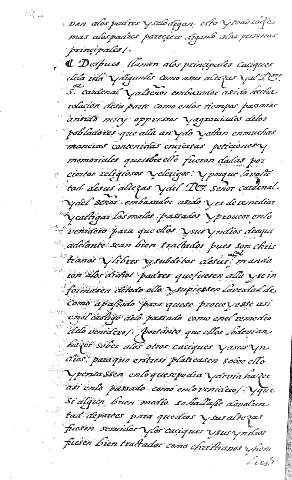 dan alos padres y selo digan esto y todo lo de
mas alos padres pareçiere diganlo alas personas
principales /.
¶ Despues llamen alos principales caciques
dela isla y diganles como sus altezas y el Rmo
s. cardenal y el señor embaxador an sido
relacion desta parte como enlos tiempos pasados
an sido muy oppressos y agraviados delos
pobladores que alla an ydo y estan en muchas
maneras contenidas en ciertas petiçiones y
memoriales que sobre ello fueron dadas por
ciertos religiosos y clerigos: y porque la volū
tad de sus altezas y del Rmo señor cardenal
y del señor embaxador a sido y es de remediar
y castigar los males passados y proveer enlo
venidero para que ellos y sus yndios de aqui
adelante sean bien tratados pues son chris
tianos y libres y subditos de sus al. manda
ron alos dichos padres que fuesen alla y se in
formasen de todo ello y supiesen la verdad de
como a passado para que se provea este asi
enel castigo delo passado como enel remedio
delo venidero /. por tanto que ellos
hazer saber alos otros caciques y a sus yn
dios: para que entresi platicasen sobre ello
y pensassen enlo que se podia y devia hazer
asi enlo passado como enlo venidero /. y que
si algun buen medio se hallase
tad de partes para que dios y sus altezas
fuesen servidos y los caciques y sus yndios
fuesen bien tratados como christianos y hom